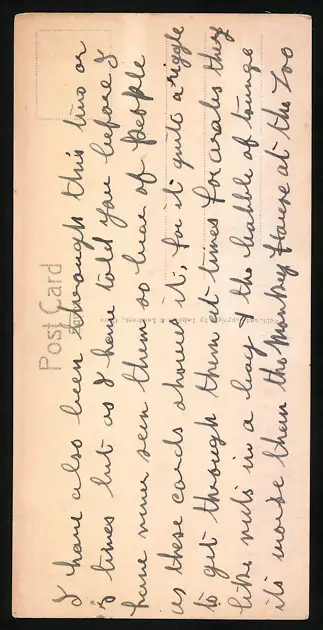 Post Card
I have also been through this two or
3 times but as I have told you before I
have never seen them so bear of people
as these cards shows it, for it quite a riggle
to get through them at times for arabs they
like nuts in a bag & the babble of tounge
its worse than the Monkey House at the Zoo